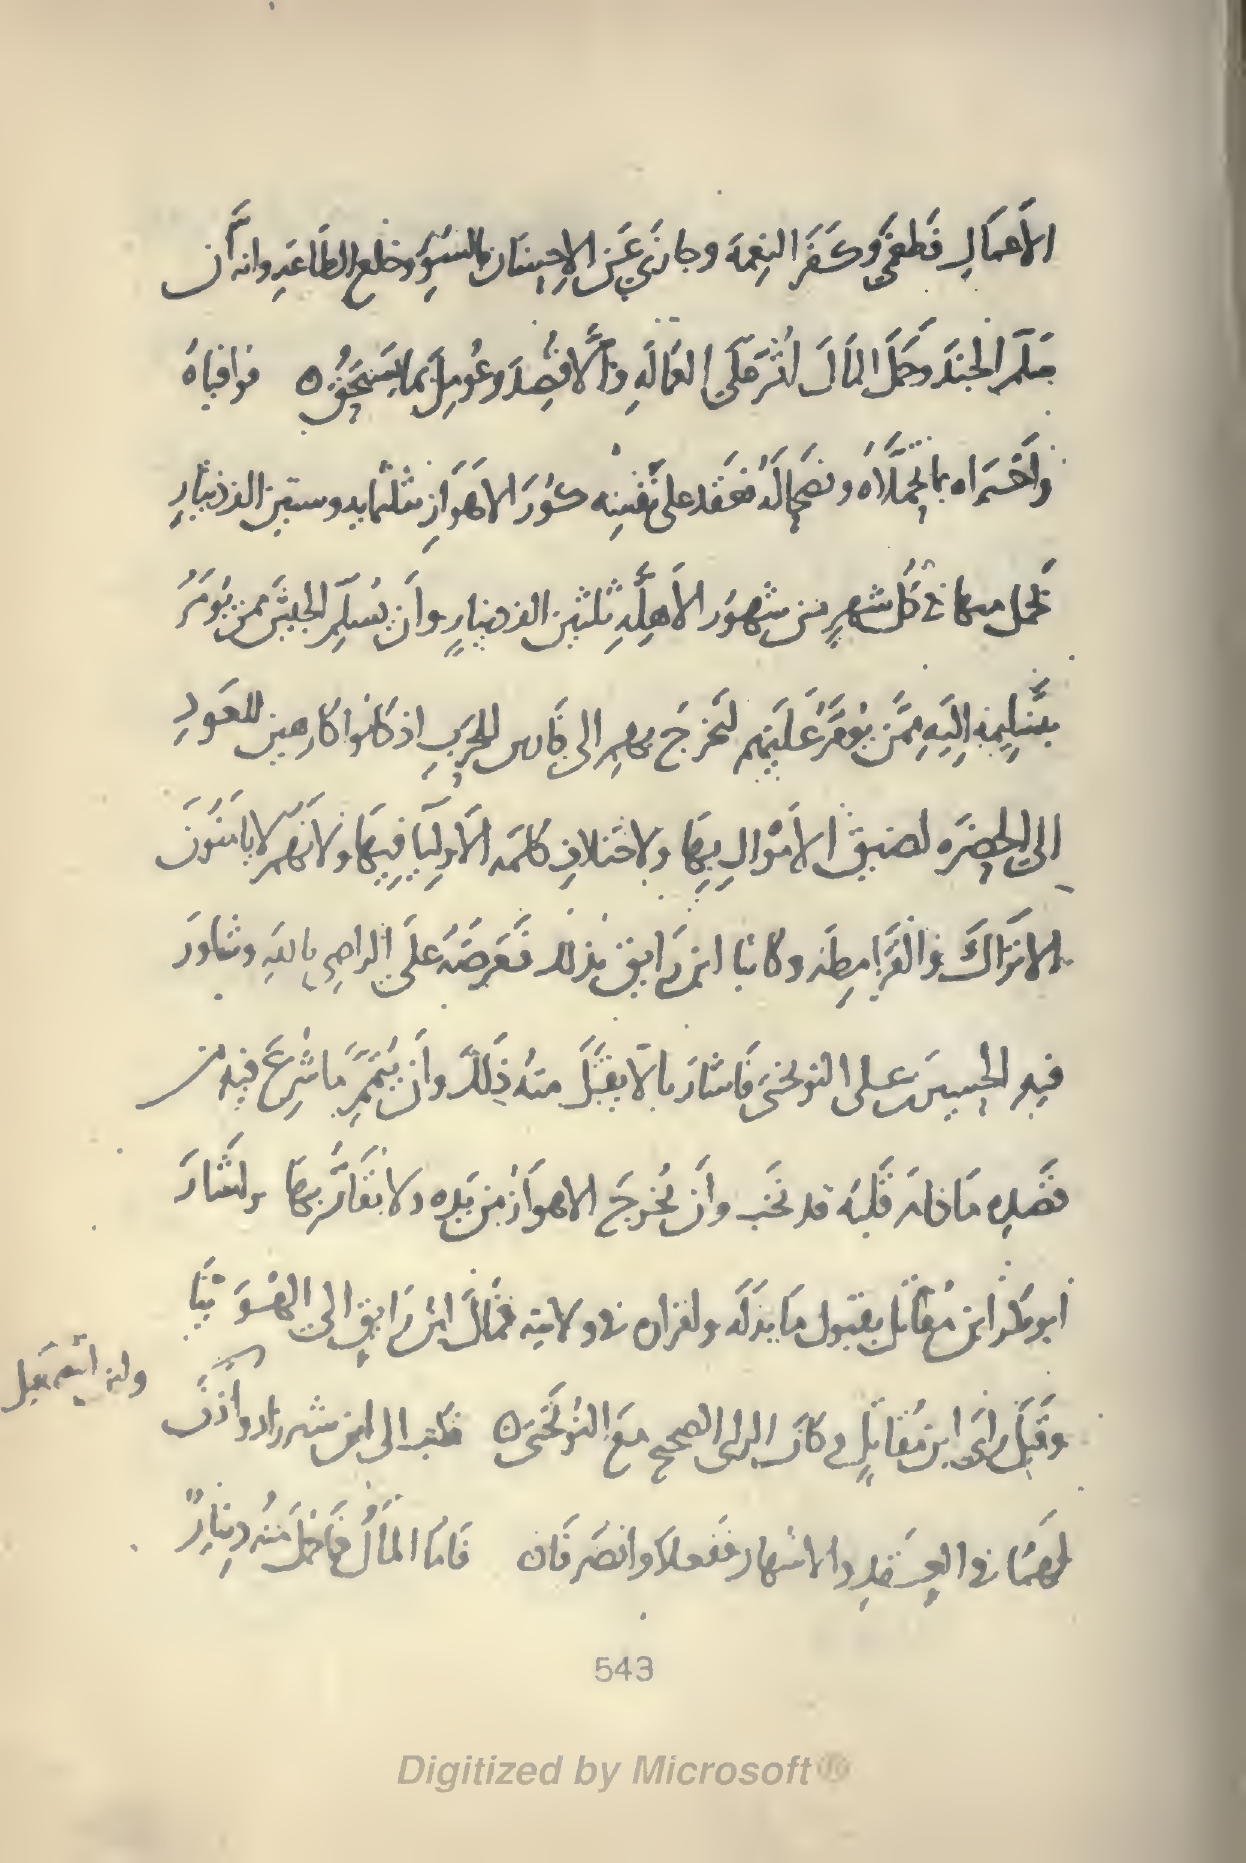 الأَعمَالِ فَطَغَى وَكَفَرَ النِعمَة وجازَى عَن الإحسَان بالسَوِّ وخلع الطَاعَة وانه ان
سَلَّم الجُندَ وحَمَلَ المَالَ أُقرَّ عَلَى العَمَالَةِ وَإلَّا قُصِدَ وعُومِلَ بمَا يَستَحِقُّ ه فوافياهُ
وأَخبَراه بما تحمَّلاهُ ونَصَحَا لَهُ فعَقَد على نَفسِه كُوَرَ الاهوَازِ بثلثمايه وستين الف دينَارٍ
تحمل منها فى كُل شهرٍ من شهُور الأَهِلَّةِ ثلثين الف دينارٍ وأن يُسَلِّمَ الجيشَ ممن يُومَرُ
بتَسلِيمِه إلَيهِ مِمَّن يُؤمَّرُ عَلَيهِم ليَخرجَ بهِم الى فَارس للحَربِ اذ كانُوا كارهين للعَودِ
الى الحَضرَه لضيق الأموَالِ بِهَا ولاختلافِ كلمَه الأَولِيَا فِيهَا ولأنهُم لا يَأمَنُونَ
الاترَاكَ والقَرَامِطَه وكاتبا ابن رَايق بذلك فَعَرضَهُ عَلَى الراضِى باللهِ وشاورَ
فيهِ الحُسينَ بن على النوبختى فاشَارَ بالّا يقبَلَ منهُ ذَلكَ وأَن يُتَمِّمَ مَا شَرعَ فيه من
قَصدِه مَا دَامَ قَلبُه قد نخَب وأن تُخرجَ الاهوَازُ من يَدِه ولا يُقَارَّ بِهَا واشَارَ
ابو بكر ابن مُقَاتل بقبول مَا بذَلَه واقراره فى ولايته فمَالَ ابن رَايق الى الهُوَينَا
وقَبِلَ رَاىَ ابن مُقَاتِلٍ وكانَ الراى الصحيح مَعَ النُّوبَختى ه فكتب الى ابن شيرزاد وأَذِنَ
لَهُمَا فى العَقدِ والاشهاد ففعلا وانصَرفَا فَامّا المَالُ فمَا حُمِلَ منهُ دِينَارٌ
543
Digitized by Microsoft ®